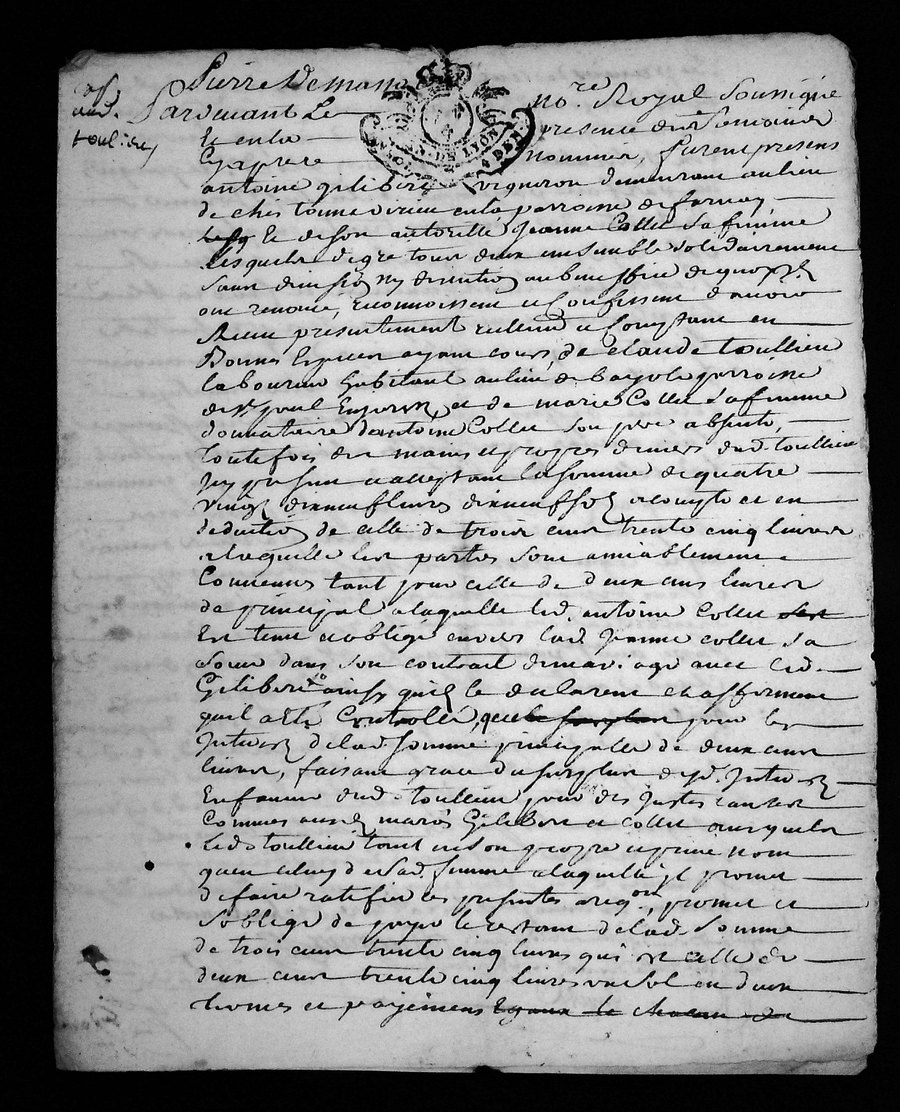 Pierre Demans
Pardevant Le no.re Royal Soussigné
Et en la presence des Temoins
Cy apres nommés, furent presens
antoine gilibert vigneron demeurant au lieu
de en la parroisse de farnay
Et de son autorité Jeanne Collet sa femme
Lesquels de gré tous deux ensemble solidairement
sans division ny discution au beneffice de quoy
ont renoncé, reconnoissent et Confessent d'avoir
Receu presentement reellement et Comptant en
Bonnes Especes ayant cours, de claude toullieu
laboureur habitant au lieu de parroisse
de St. paul En Jarest, et de marie Collet sa femme
donnataire d'antoine Collet son pere absente,
toutefois des mains et propres deniers dud. toullieu
Icy present et acceptant la somme de quatre
vingt dixneuf livres dixneuf sols a compte et en
deduction de celle de trois cens trente cinq livres
a laquelle les parties sont amiablement
Convenues tant pour celle de deux cens livres
de principal a laquelle led. antoine Collet
Est tenu et obligé envers lad. Jeanne collet sa
soeur dans son contrait de mariage avec led.
Gilibert ainsy quils le declarent et afferment
quil a eté Controllé, que le surplus pour les
Interets de lad. somme principalle de deux cens
livres, faisant grace du surplus desd. Interets
En faveur dud. toullieu pour des justes causes
Connues ausd. mariés Gilibert et Collet ausquels
Led. toullieu tant en son propre et privé nom
quen celuy de sad. femme a laquelle il promet
de faire ratifier ces presentes promet et
s'oblige de payer le restant de lad. somme
de trois cens trente cinq livres qui est celle de
deux cens trente cinq livres un sol en deux
termes et payemens Egaux le chacun
aud.
toullieu
GEN. DE LYON
4 DEN.